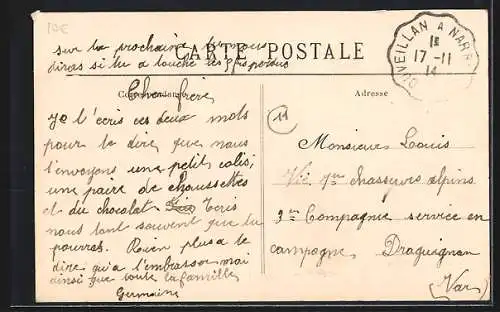 10€
sur ta prochaine tu nous
diras si tu a touche les 5f perdus
CARTE POSTALE
CUVEILLAN A NARB
1E
17-11
14
Correspondance
Adresse
Cher frère
11
Je t'écris ces deux mots
pour te dire que nous
t'envoyons une petit colis,
une paire de chaussettes
et du chocolat Ecris
nous tant souvent que tu
pourras. Rien plus a te
dire qu'a t'embrasser moi
ainsi que toute la famille
Germaine
Monsieur Louis
Vié 7me chasseurs alpins
3me Compagnie service en
campagne Draguignan
(Var)